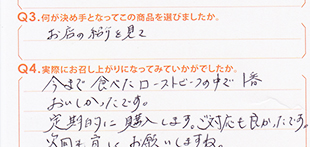 Q3.何が決め手となってこの商品を選びましたか。
お店の紹介を見て
Q4.実際にお召し上がりになってみていかがでしたか。
今まで食べたローストビーフの中で1番
おいしかったです。
定期的に購入します。ご対応も良かったです。
次回も宜しくお願いしますね。